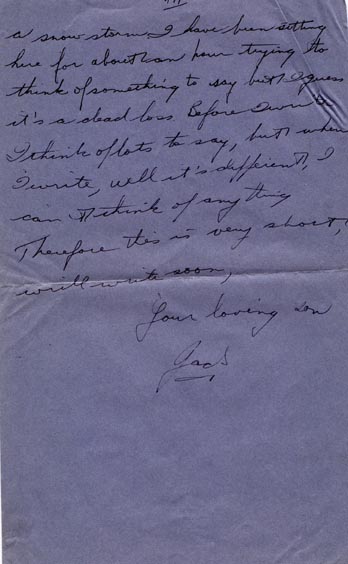 a snow storm. I have been sitting
here for about an hour trying to
think of something to say but I guess
it's a dead loss. Before I write
I think of lots to say, but when
I write, well it's different, I
can't think of anything
Therefore this is very short,
will write soon,
Your loving son